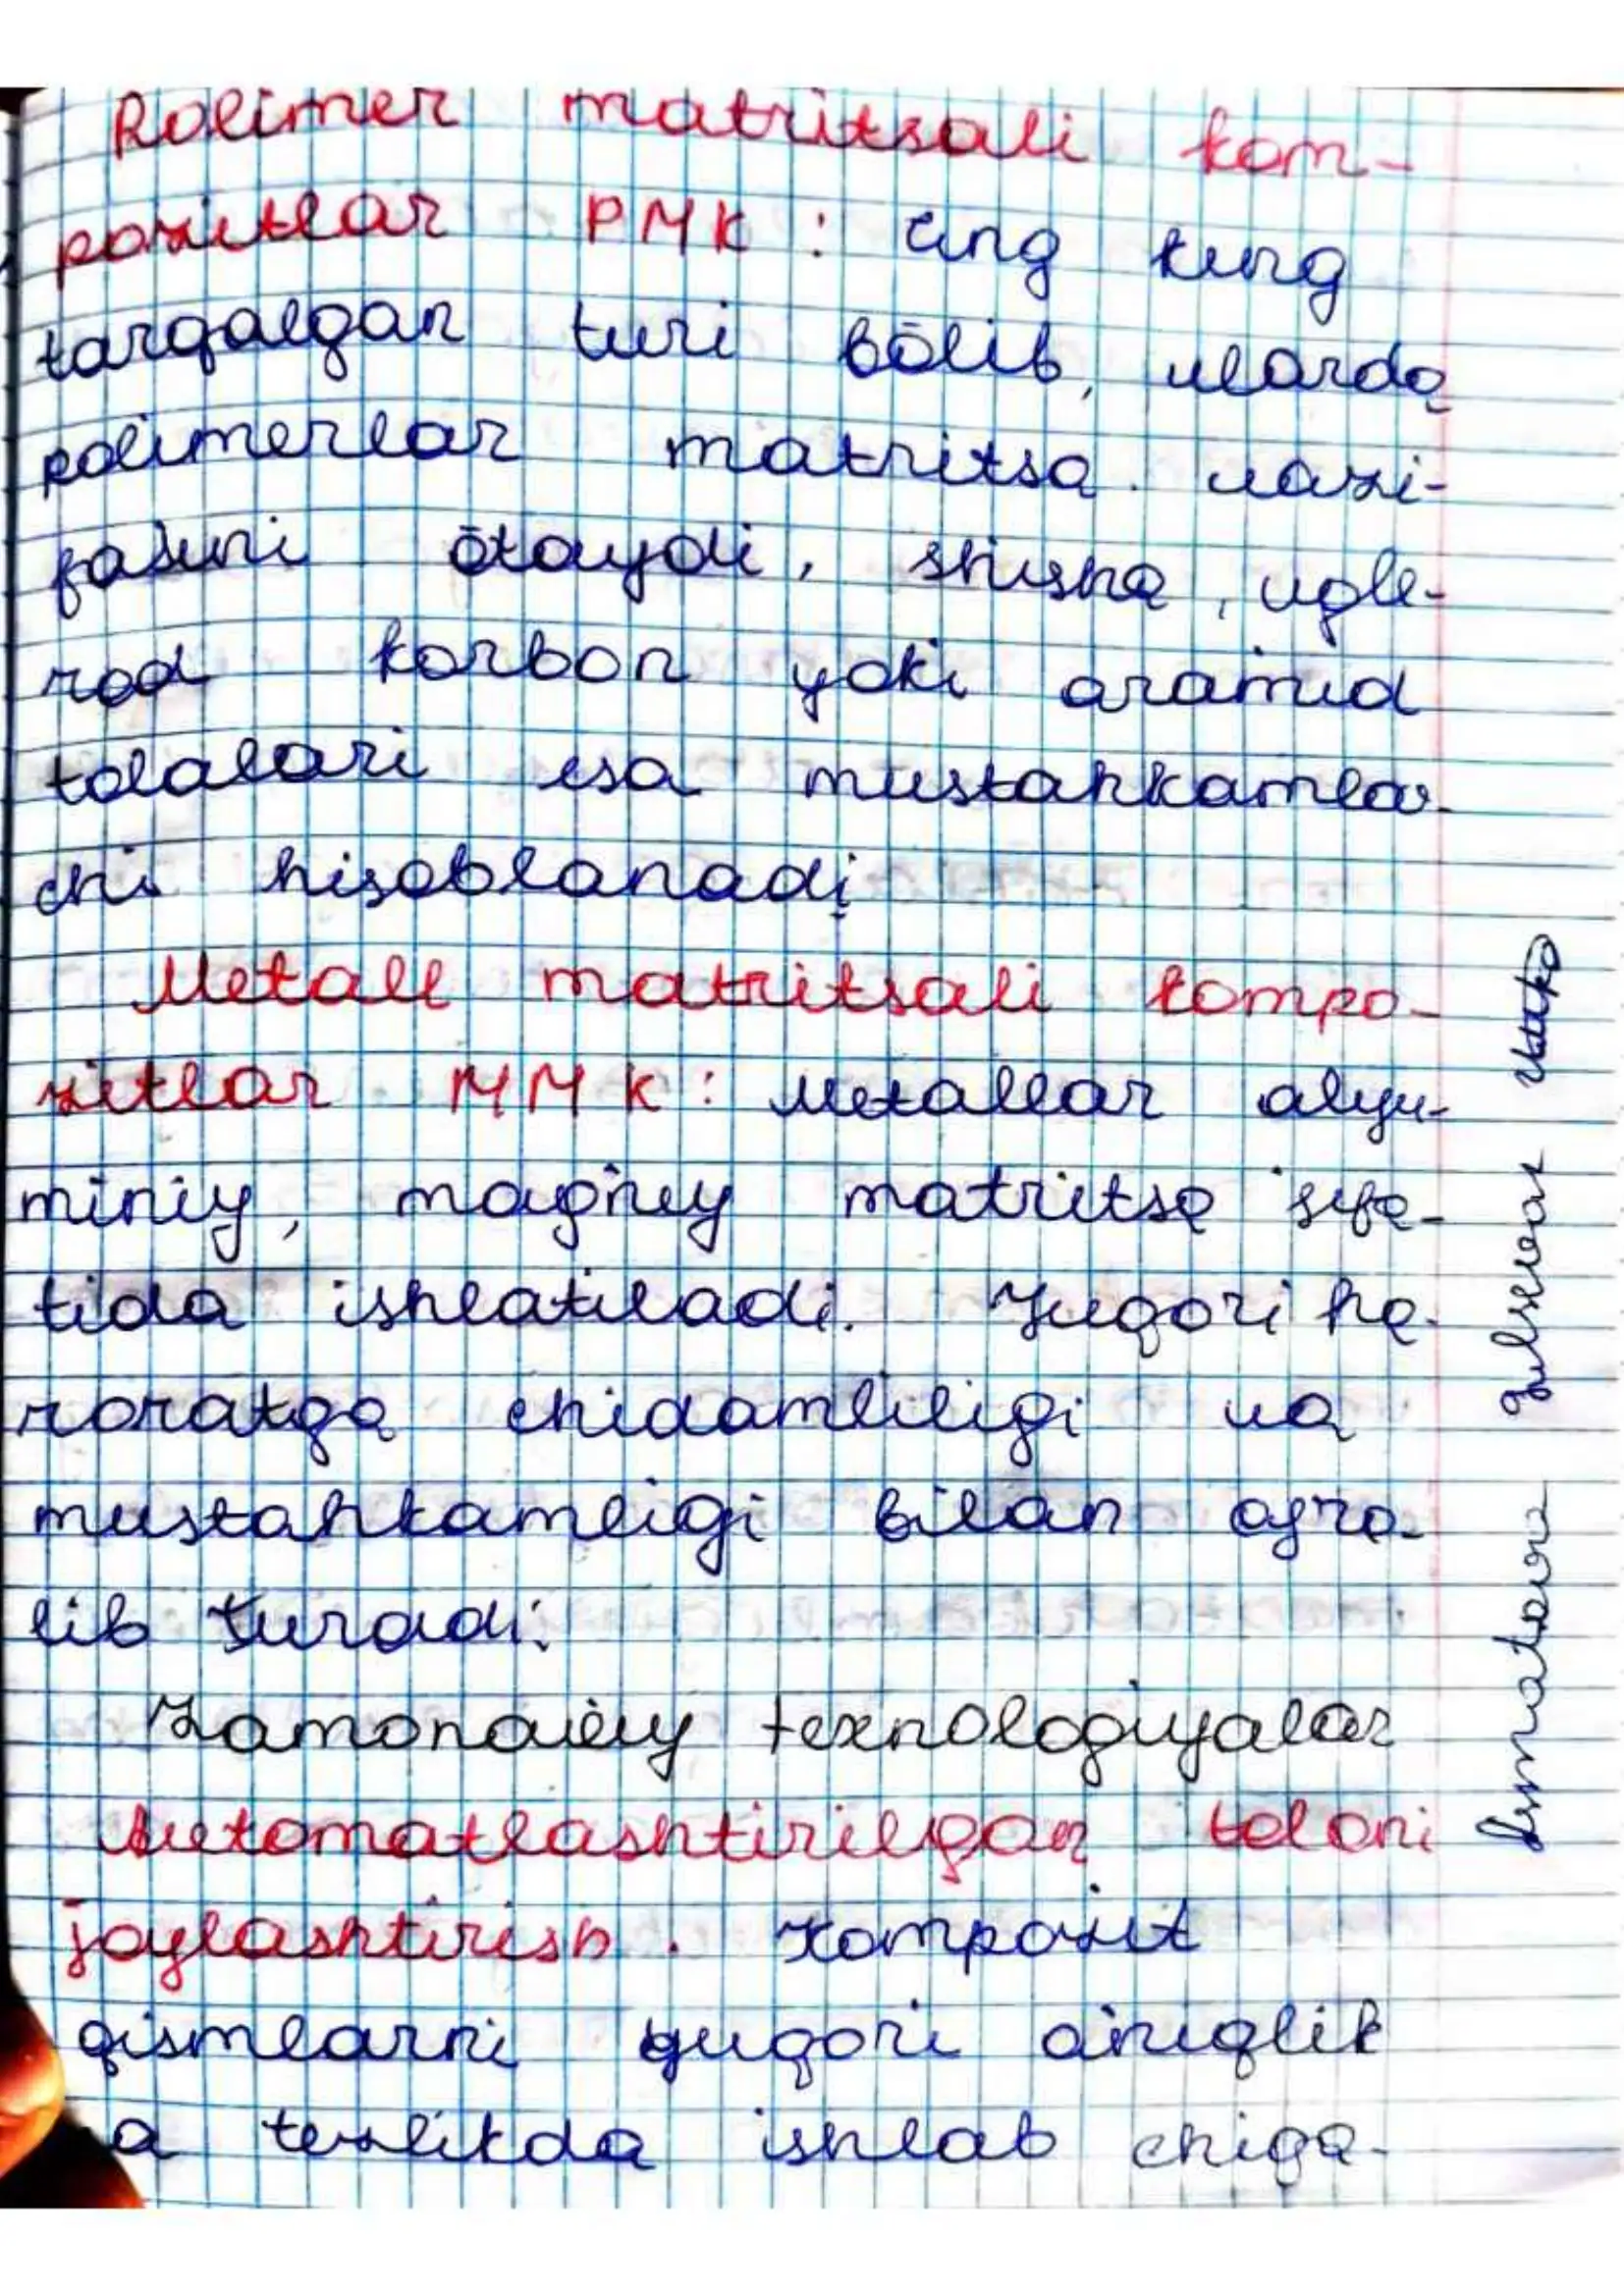 Polimer matritsali kom-
pozitlar PMK: Eng keng
tarqalgan turi bōlib, ularda
polimerlar matritsa vazi-
fasini ōtaydi, shisha, ugle-
rod karbon yoki aramid
tolalari esa mustahkamlov-
chi hisoblanadi
Metall matritsali kompo-
zitlar MMK: Metallar alyu-
miniy, magniy matritsa sifa-
tida ishlatiladi. Yuqori ha-
roratga chidamliligi va
mustahkamligi bilan ajra-
lib turadi:
Zamonaviy texnologiyalar
Avtomatlashtirilgan tolani
joylashtirish. Kompozit
qismlarni yuqori aniqlik
a tezlikda ishlab chiqa-
Ismatova Gulsevar